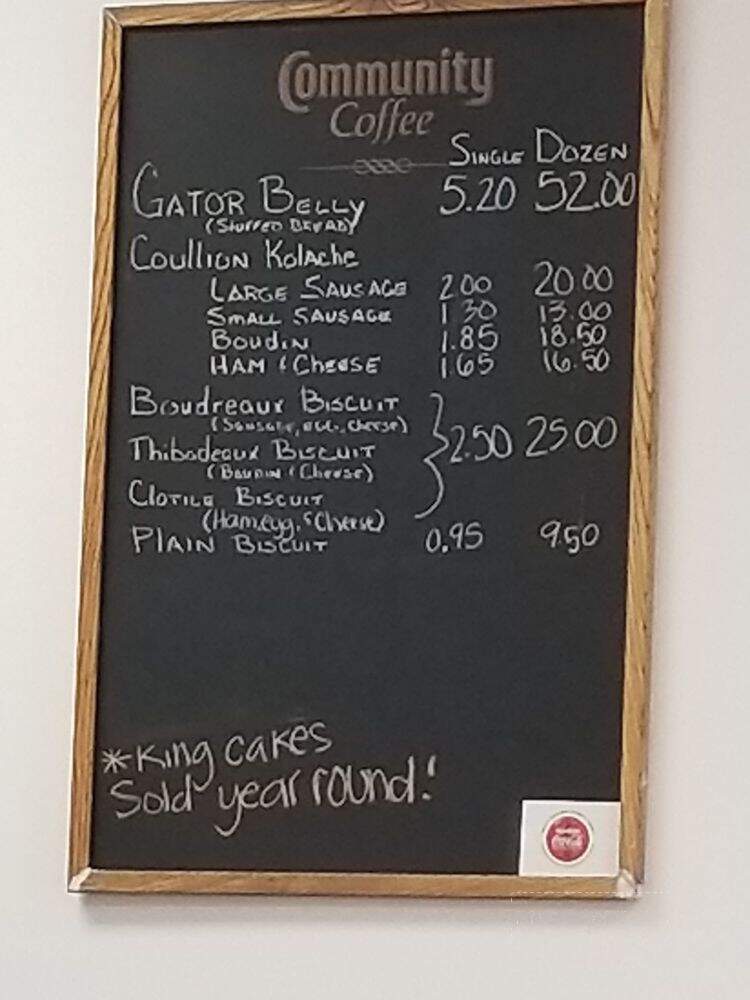 Community
Coffee
SINGLE DOZEN
GATOR BELLY 5.20 52.00
(STUFFED BREAD)
Coullion Kolache
LARGE SAUSAGE 2.00 20.00
SMALL SAUSAGE 1.30 13.00
BOUDIN 1.85 18.50
HAM & CHEESE 1.65 16.50
Boudreaux BISCUIT
(Sausage, egg, cheese)
Thibodeaux BISCUIT 2.50 25.00
(BOUDIN & Cheese)
CLOTILE BISCUIT
(Ham, egg, & Cheese)
PLAIN BISCUIT 0.95 9.50
*King cakes
Sold year round!
Coca-Cola